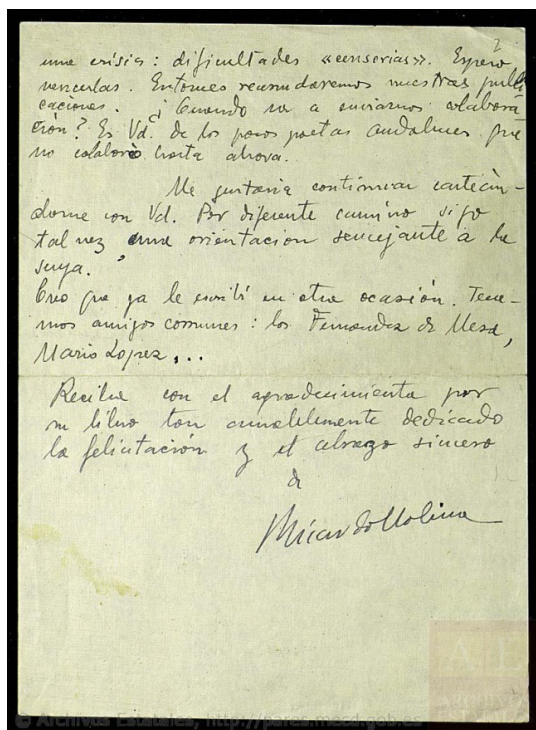 2
una crisis: dificultades «censorias». Espero
vencerlas. Entonces reanudaremos nuestras publi
caciones. ¿Cuando va a enviarnos colabora
ción? Es Vd. de los pocos poetas andaluces que
no colaboró hasta ahora.
Me gustaria continuar carteán-
dome con Vd. Por diferente camino sigo
tal vez una orientacion semejante a la
suya.
Creo que ya le escribí en otra ocasión. Tene-
mos amigos comunes: los Fernandez de Mesa,
Mario Lopez, ...
Reciba con el agradecimiento por
su libro tan amablemente dedicado
la felicitación y el abrazo sincero
de
Ricardo Molina
© Archivos Estatales, http://pares.mecd.gob.es